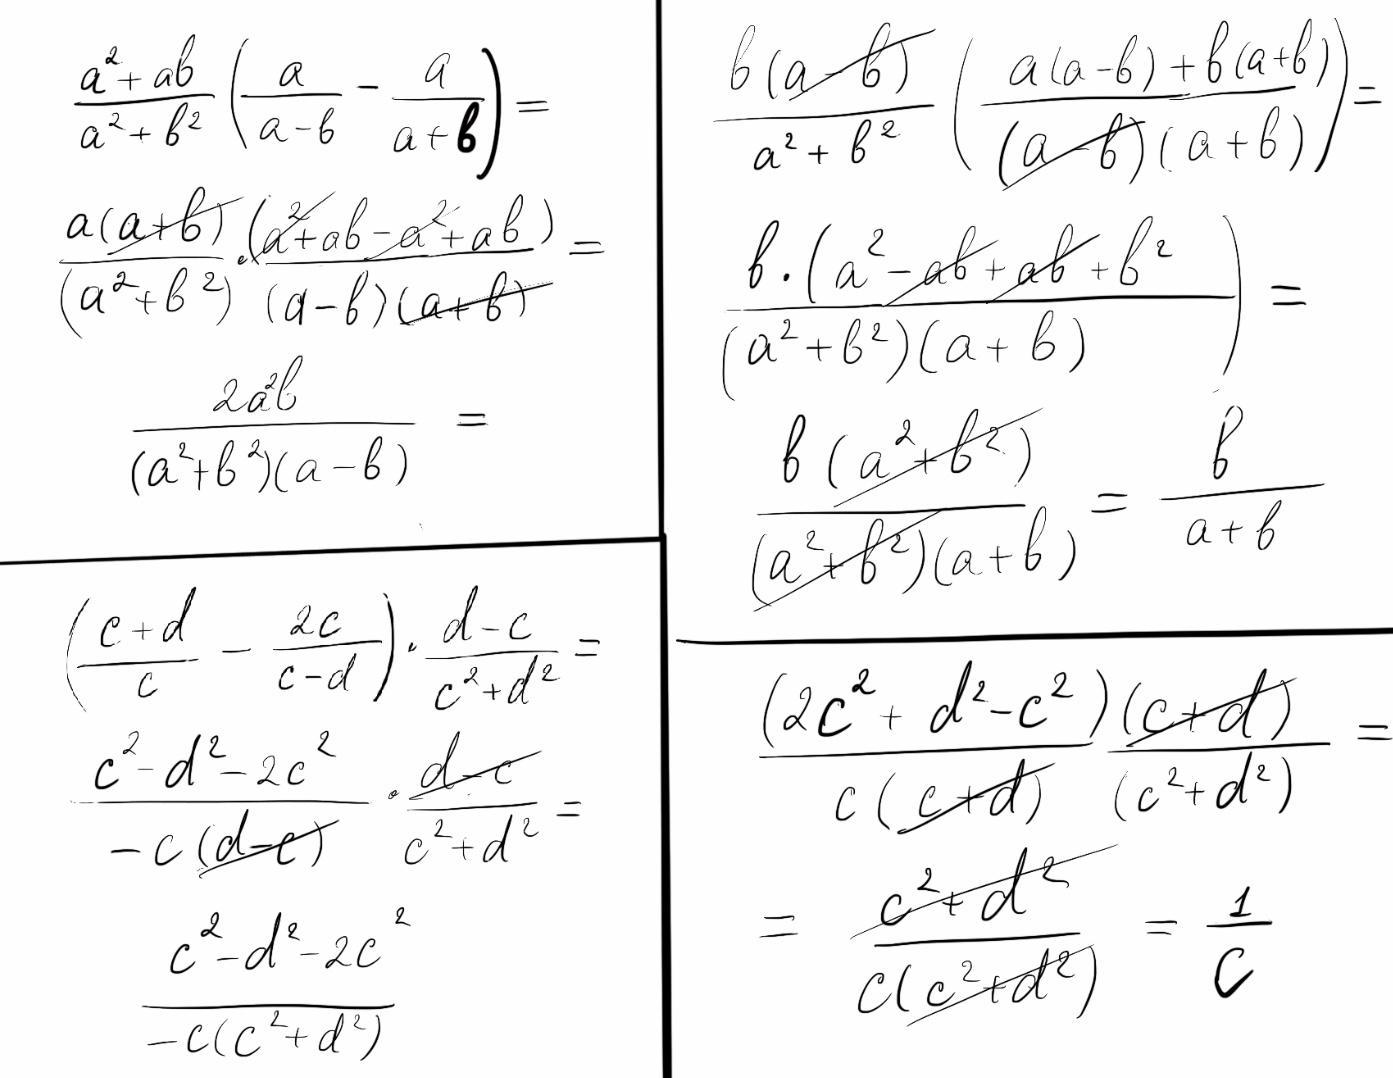 (a² + ab)/(a² + b²) (a/(a - b) - a/(a + b)) =
a(a+b)/(a²+b²) · (a²+ab-a²+ab)/((a-b)(a+b)) =
2a²b/((a²+b²)(a-b)) =
b(a-b)/(a² + b²) ((a(a-b)+b(a+b))/((a-b)(a+b))) =
b·(a²-ab+ab+b²)/((a²+b²)(a+b)) =
b(a²+b²)/((a²+b²)(a+b)) = b/(a+b)
((c+d)/c - 2c/(c-d)) · (d-c)/(c²+d²) =
(c²-d²-2c²)/(-c(d-c)) · (d-c)/(c²+d²) =
(c²-d²-2c²)/(-c(c²+d²))
(2c²+d²-c²)/(c(c+d)) (c+d)/(c²+d²) =
= (c²+d²)/(c(c²+d²)) = 1/c